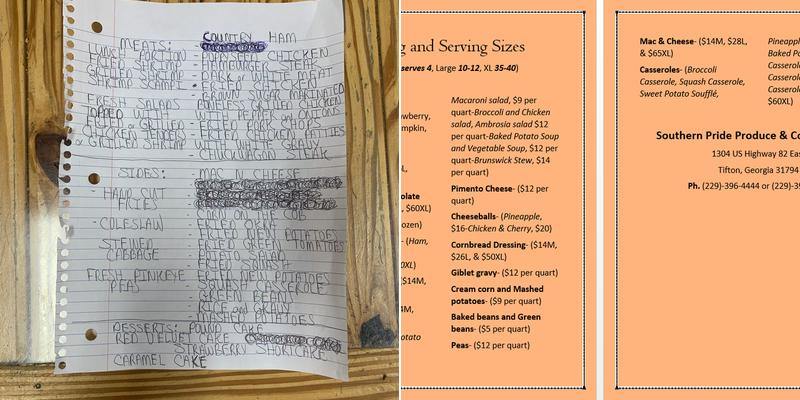 COUNTRY HAM
MEATS:
LUNCH PORTION - POPPYSEED CHICKEN
FRIED SHRIMP - HAMBURGER STEAK
GRILLED SHRIMP - DARK or WHITE MEAT
SHRIMP SCAMPI
- BROWN SUGAR MARINATED
FRESH SALADS BONELESS GRILLED CHICKEN
LOADED WITH WITH PEPPER and ONIONS
CHICKEN or GRILLED - FRIED PORK CHOPS
CHICKEN TENDERS - FRIED CHICKEN PATTIES
or GRILLED SHRIMP WITH WHITE GRAVY
- CHUCKWAGON STEAK
SIDES: - MAC N CHEESE
- HAND CUT
FRIES
- CORN ON THE COB
- COLESLAW - FRIED OKRA
- FRIED NEW POTATOES
STEWED - FRIED GREEN TOMATOES
CABBAGE - POTATO SALAD
- FRIED SQUASH
FRESH PINKEYE - FRIED NEW POTATOES
PEAS - SQUASH CASSEROLE
- GREEN BEANS
- RICE and GRAVY
- MASHED POTATOES
DESSERTS: POUND CAKE
RED VELVET CAKE
STRAWBERRY SHORTCAKE
CARAMEL CAKE
g and Serving Sizes
serves 4, Large 10-12, XL 35-40)
wberry,
mpkin,
olate
, $60XL)
ozen)
- (Ham,
0XL)
($14M,
4M,
otato
Macaroni salad, $9 per
quart-Broccoli and Chicken
salad, Ambrosia salad $12
per quart-Baked Potato Soup
and Vegetable Soup, $12 per
quart-Brunswick Stew, $14
per quart)
Pimento Cheese- ($12 per
quart)
Cheeseballs- (Pineapple,
$16-Chicken & Cherry, $20)
Cornbread Dressing- ($14M,
$26L, & $50XL)
Giblet gravy- ($12 per quart)
Cream corn and Mashed
potatoes- ($9 per quart)
Baked beans and Green
beans- ($5 per quart)
Peas- ($12 per quart)
Mac & Cheese- ($14M, $28L,
& $65XL)
Casseroles- (Broccoli
Casserole, Squash Casserole,
Sweet Potato Soufflé,
Pineappl
Baked Po
Casserol
Casserol
Casserol
$60XL)
Southern Pride Produce & Co
1304 US Highway 82 Eas
Tifton, Georgia 31794
Ph. (229)-396-4444 or (229)-3